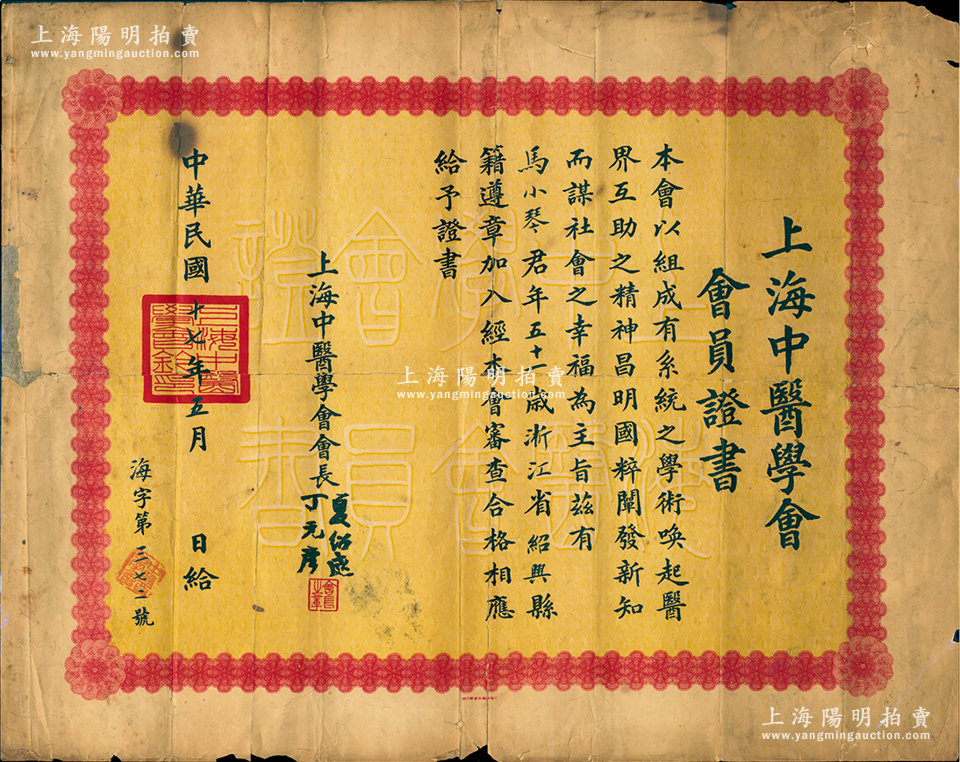 上海陽明拍賣
www.yangmingauction.com
上海中醫學會
會員證書
本會以組成有系統之學術喚起醫
界互助之精神昌明國粹闡發新知
而謀社會之幸福為主旨茲有
馬小琴君年五十一歲浙江省紹興縣
籍遵章加入經本會審查合格相應
給予證書
上海中醫學會會長
夏應堂
丁元彥
會長之章
中華民國十七年五月 日給
上海中醫學會鈐記
海字第三七二號
上海中醫學會會員證書
上海陽明拍賣
www.yangmingauction.com
上海陽明拍賣
www.yangmingauction.com